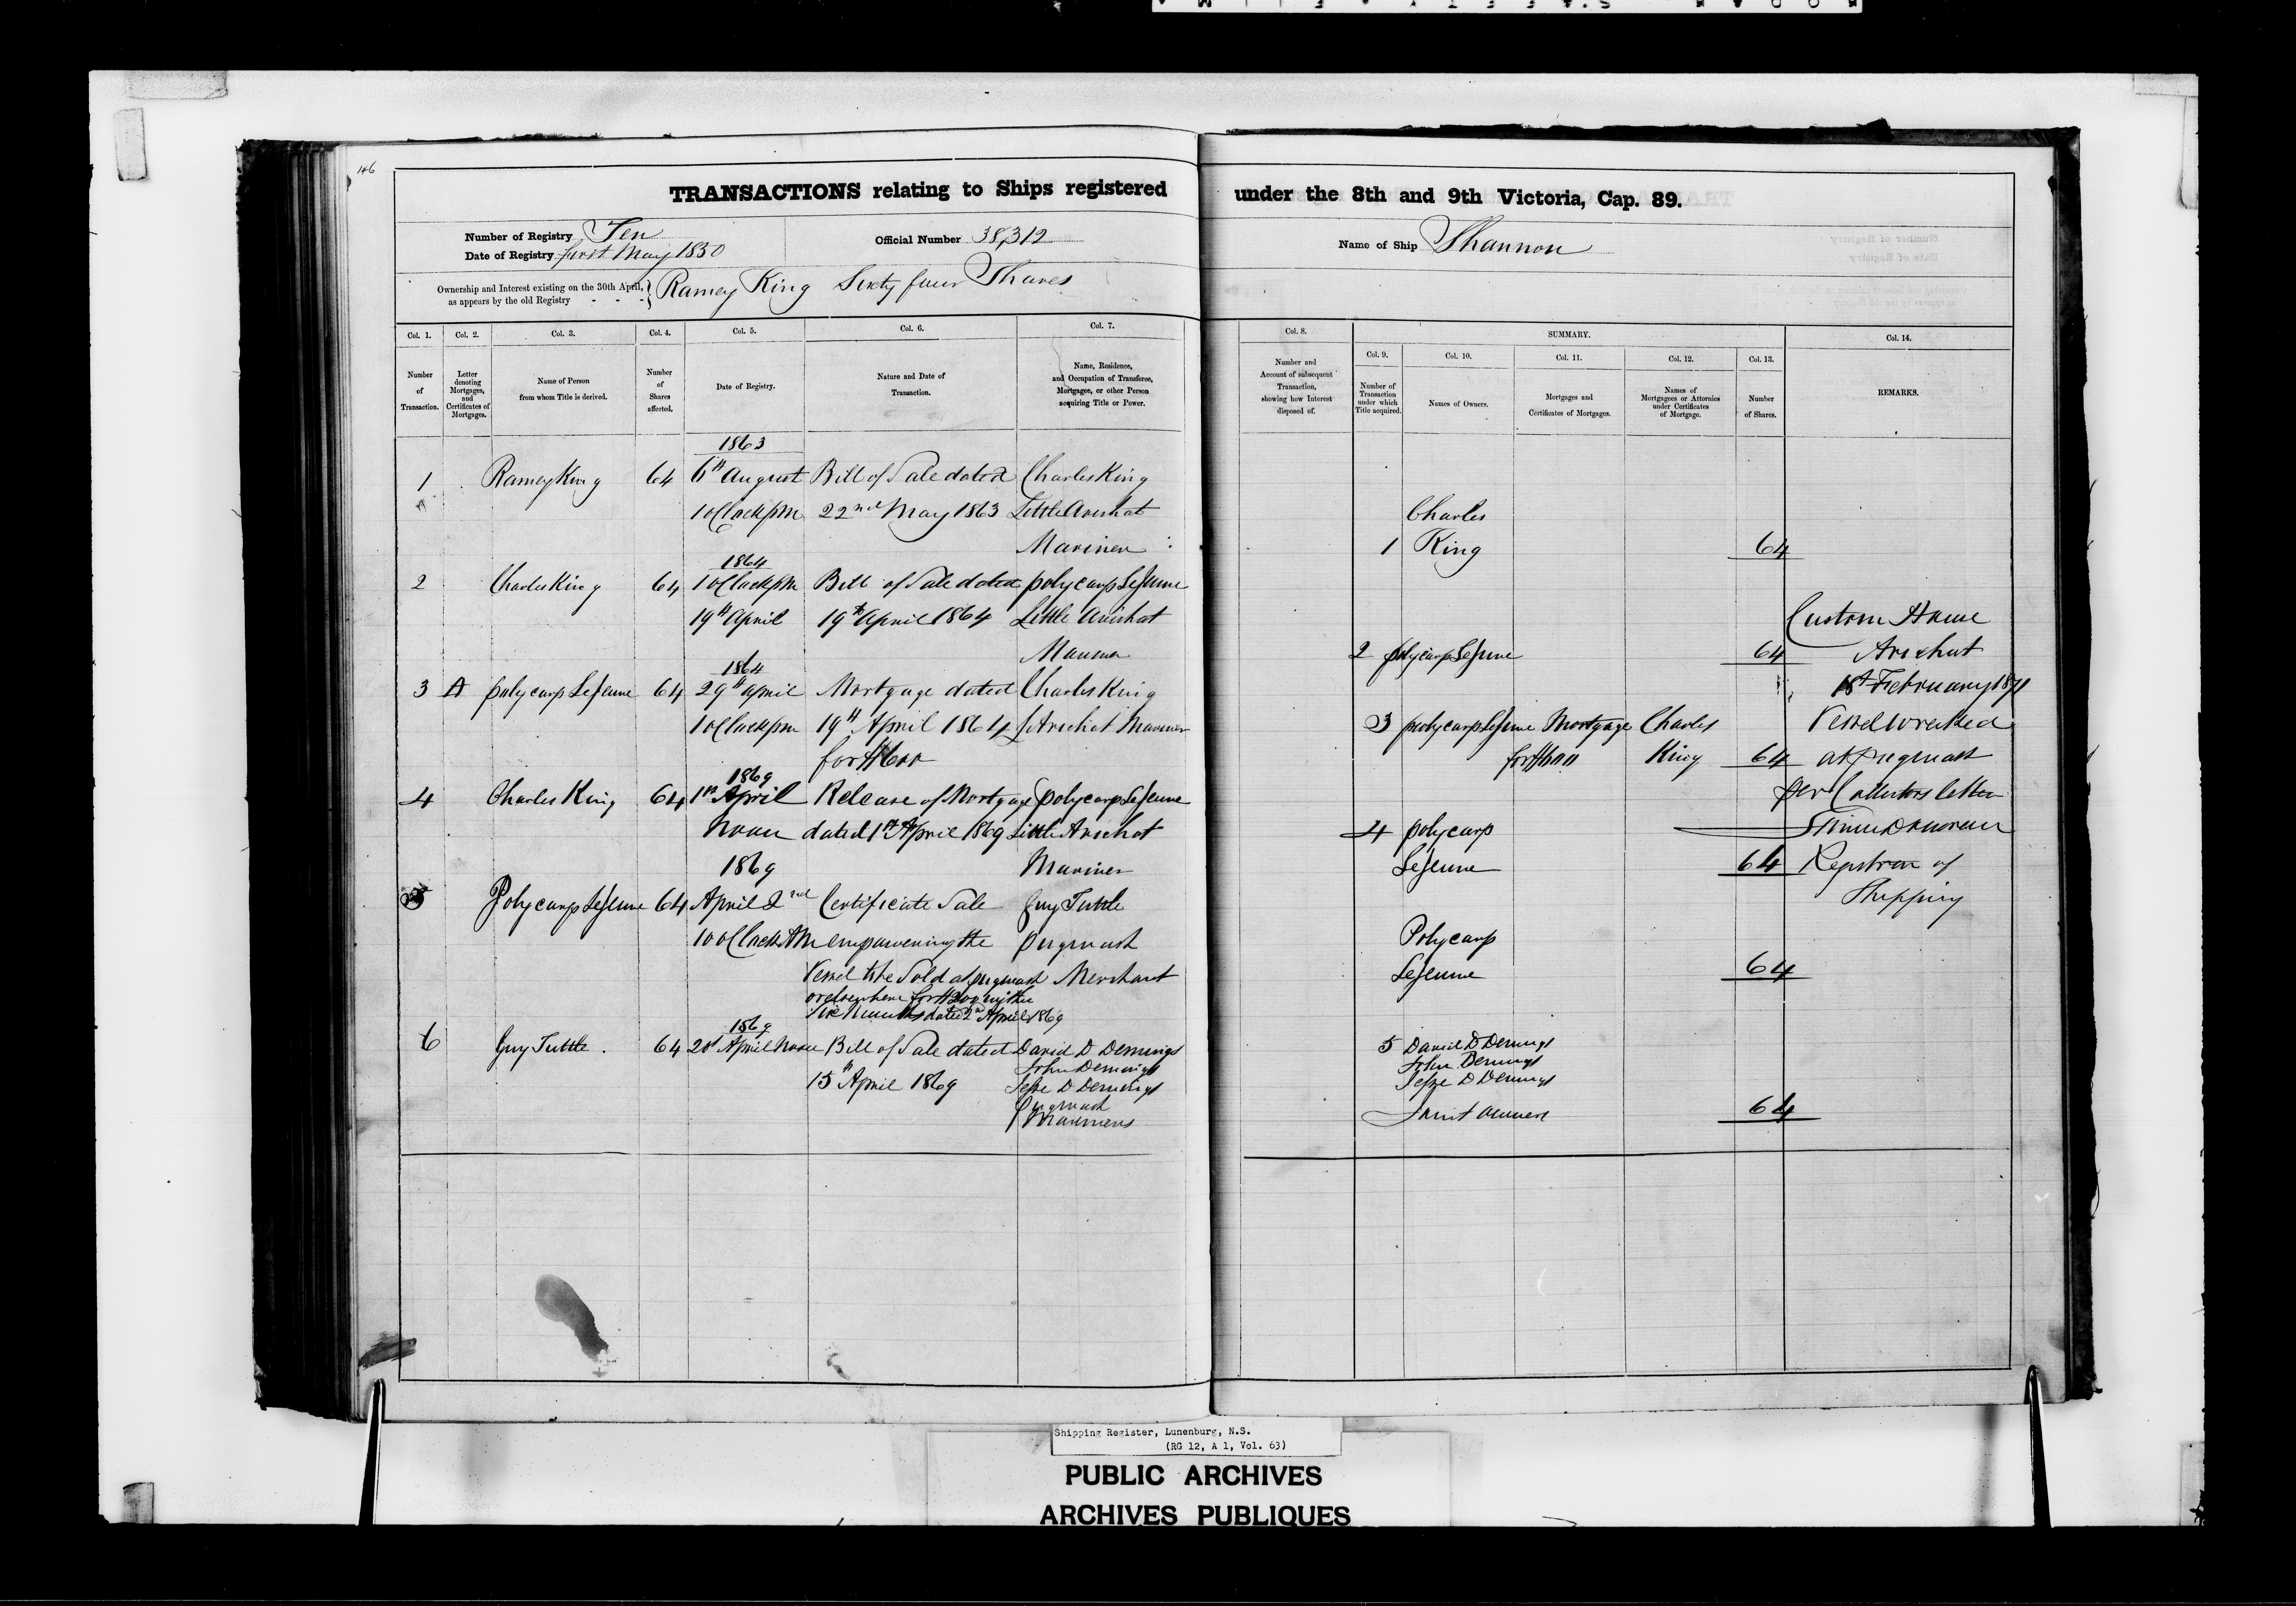 146
TRANSACTIONS relating to Ships registered under the 8th and 9th Victoria, Cap. 89.
Number of Registry Ten
Date of Registry first May 1850
Official Number 38,312
Name of Ship Shannon
Ownership and Interest existing on the 30th April,
as appears by the old Registry - - -
Ramey King Sixty four Shares
Col. 1. Col. 2. Col. 3. Col. 4. Col. 5. Col. 6. Col. 7.
Number of Transaction.
Letter denoting Mortgages, and Certificates of Mortgages.
Name of Person from whom Title is derived.
Number of Shares affected.
Date of Registry.
Nature and Date of Transaction.
Name, Residence, and Occupation of Transferee, Mortgagee, or other Person acquiring Title or Power.
1863
1 Ramey King 64 6th August Bill of Sale dated Charles King
1 oClock pm 22nd May 1863 Little Arichat
Mariner
1864
2 Charles King 64 1 oClock pm Bill of Sale dated polycarp LeJeune
19th April 19th April 1864 Little Arichat
Mariner
1864
3 A polycarp LeJeune 64 29th April Mortgage dated Charles King
1 oClock pm 19th April 1864 L Arichat Mariner
for $600
1869
4 Charles King 64 1st April Release of Mortgage polycarp LeJeune
Noon dated 1st April 1869 Little Arichat
1869 Mariner
5 Polycarp LeJeune 64 April 2nd Certificate Sale Guy Tuttle
10 oClock AM empowering the pugwash
Vessel to be Sold at pugwash Merchant
or elsewhere for $200 within
Six Months dated 2nd April 1869
1869
6 Guy Tuttle . 64 20th April Noon Bill of Sale dated David D Demings
John Demings
15th April 1869 Jesse D Demings
Pugwash
Mariners
Col. 8.
SUMMARY.
Col. 9. Col. 10. Col. 11. Col. 12. Col. 13.
Col. 14.
Number and Account of subsequent Transaction, showing how Interest disposed of.
Number of Transaction under which Title acquired.
Names of Owners.
Mortgages and Certificates of Mortgages.
Names of Mortgagees or Attornies under Certificates of Mortgage.
Number of Shares.
REMARKS.
Charles
1 King 64
2 polycarp LeJeune 64
3 polycarp LeJeune Mortgage Charles
for $600 King 64
4 polycarp
LeJeune 64
Polycarp
LeJeune 64
5 David D Demings
John Demings
Jesse D Demings
Joint owners 64
Custom House
Arichat
February 1871
Vessel wrecked
at pugwash
per Collectors letter
Registrar of
Shipping
Shipping Register, Lunenburg, N.S.
(RG 12, A 1, Vol. 63)
PUBLIC ARCHIVES
ARCHIVES PUBLIQUES